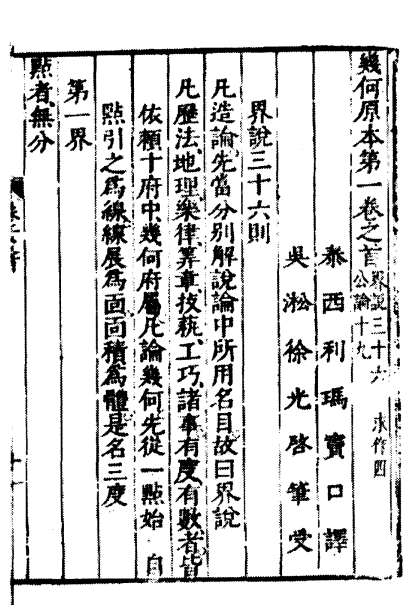 幾何原本第一卷之首 界說三十六 求作四 公論十九
泰西利瑪竇口譯
吳淞徐光啓筆受
界說三十六則
凡造論先當分別解說論中所用名目故曰界說
凡歷法、地理、樂律、筭章、技藝、工巧、諸事有度、有數者皆
依賴十府中、幾何府屬凡論幾何先從一點始 自
點引之爲線線展爲面面積爲體是名三度
第一界
點者、無分